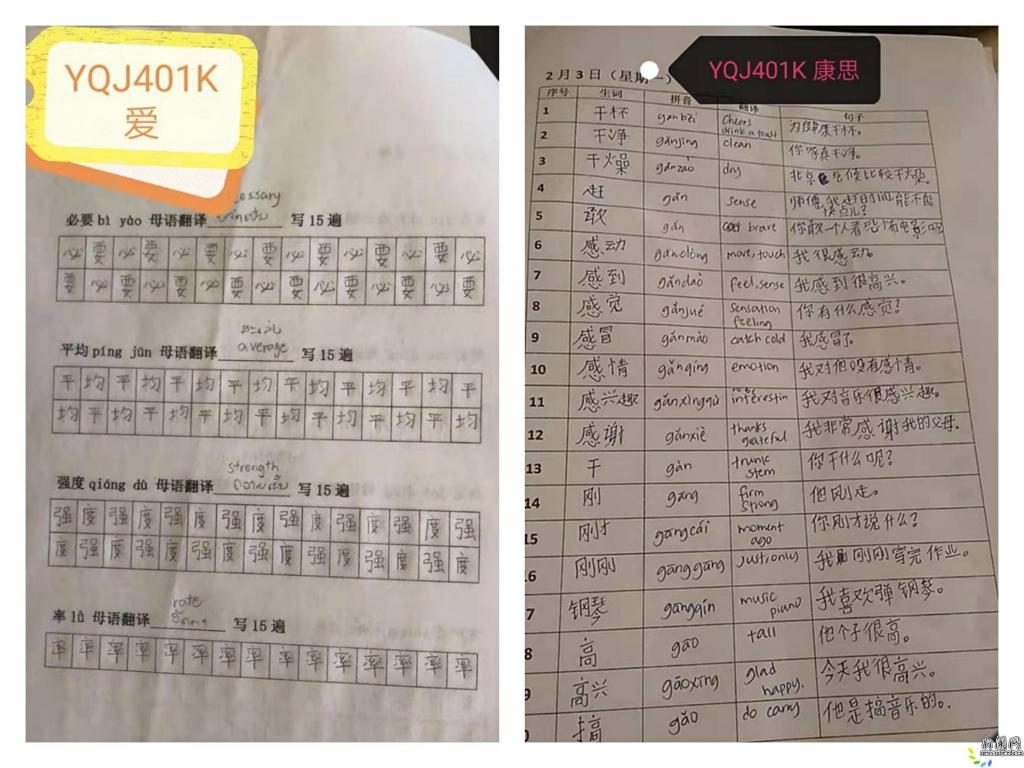 YQJ401K
爱
必要 bì yào 母语翻译 essary 写 15 遍
必 要 必 要 必 要 必 要 必 要 必 要 必 要 必
要 必 要 必 要 必 要 必 要 必 要 必 要 必 要
平均 píng jūn 母语翻译 average 写 15 遍
平 均 平 均 平 均 平 均 平 均 平 均 平 均 平
均 平 均 平 均 平 均 平 均 平 均 平 均 平 均
强度 qiáng dù 母语翻译 strength 写 15 遍
强 度 强 度 强 度 强 度 强 度 强 度 强 度 强
度 强 度 强 度 强 度 强 度 强 度 强 度 强 度
率 lǜ 母语翻译 rate 写 15 遍
率 率 率 率 率 率 率 率 率 率 率 率 率 率 率
YQJ401K 康思
2 月 3 日（星期一）
序号 生词 拼音 翻译 句子
1 干杯 gānbēi Cheers drink a toast 为健康干杯。
2 干净 gānjìng clean 你家真干净。
3 干燥 gānzào dry 北京气候比较干燥。
4 赶 gǎn sense 师傅，我赶时间，能不能快点儿？
5 敢 gǎn brave 你敢一个人看恐怖电影吗
6 感动 gǎndòng move, touch 我很感动。
7 感到 gǎndào feel, sense 我感到很高兴。
8 感觉 gǎnjué sensation feeling 你有什么感觉？
9 感冒 gǎnmào catch cold 我感冒了
10 感情 gǎnqíng emotion 我对他没有感情。
11 感兴趣 gǎnxìngqù interestin 我对音乐很感兴趣。
12 感谢 gǎnxiè thanks grateful 我非常感谢我的父母。
13 干 gàn trunk stem 你干什么呢？
14 刚 gāng firm strong 他刚走。
15 刚才 gāngcái moment ago 你刚才说什么？
16 刚刚 gānggāng just, only 我刚刚写完作业。
7 钢琴 gāngqín music piano 我喜欢弹钢琴。
8 高 gāo tall 他个子很高。
9 高兴 gāoxìng glad happy. 今天我很高兴。
搞 gǎo do carry 他是搞音乐的。
新闻网